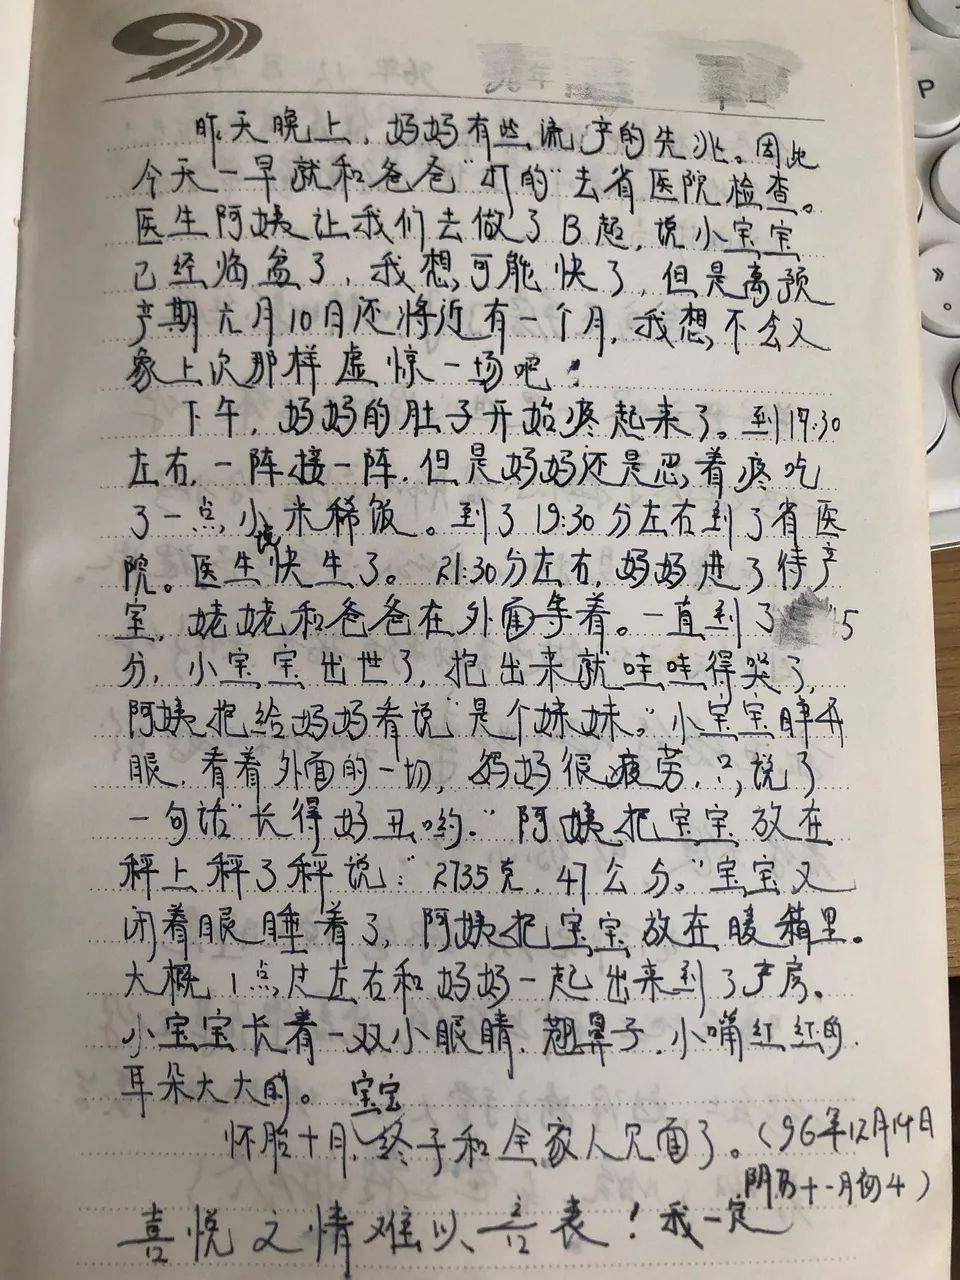 昨天晚上，妈妈有些流产的先兆。因此
今天一早就和爸爸“打的”去省医院检查。
医生阿姨让我们去做了B超，说小宝宝
已经临盆了，我想可能快了，但是离预
产期元月10日还将近有一个月，我想不会又
象上次那样虚惊一场吧！
下午，妈妈的肚子开始疼起来了。到17:30
左右，一阵接一阵，但是妈妈还是忍着疼吃
了一点小米稀饭。到了19:30分左右到了省医
院。医生说快生了。21:30分左右，妈妈进了待产
室，姥姥和爸爸在外面等着。一直到了 15
分，小宝宝出世了，抱出来就哇哇得哭了，
阿姨抱给妈妈看说“是个妹妹。”小宝宝睁开
眼，看着外面的一切，妈妈很疲劳，只说了
一句话“长得好丑哟。”阿姨把宝宝放在
秤上秤了秤说：“2735克，47公分。”宝宝又
闭着眼睡着了，阿姨把宝宝放在暖箱里。
大概1点过左右和妈妈一起出来到了产房。
小宝宝长着一双小眼睛，翘鼻子，小嘴红红的，
耳朵大大的。
怀胎十月，宝宝终于和全家人见面了。（96年12月14日
阴历十一月初4）
喜悦之情难以言表！我一定